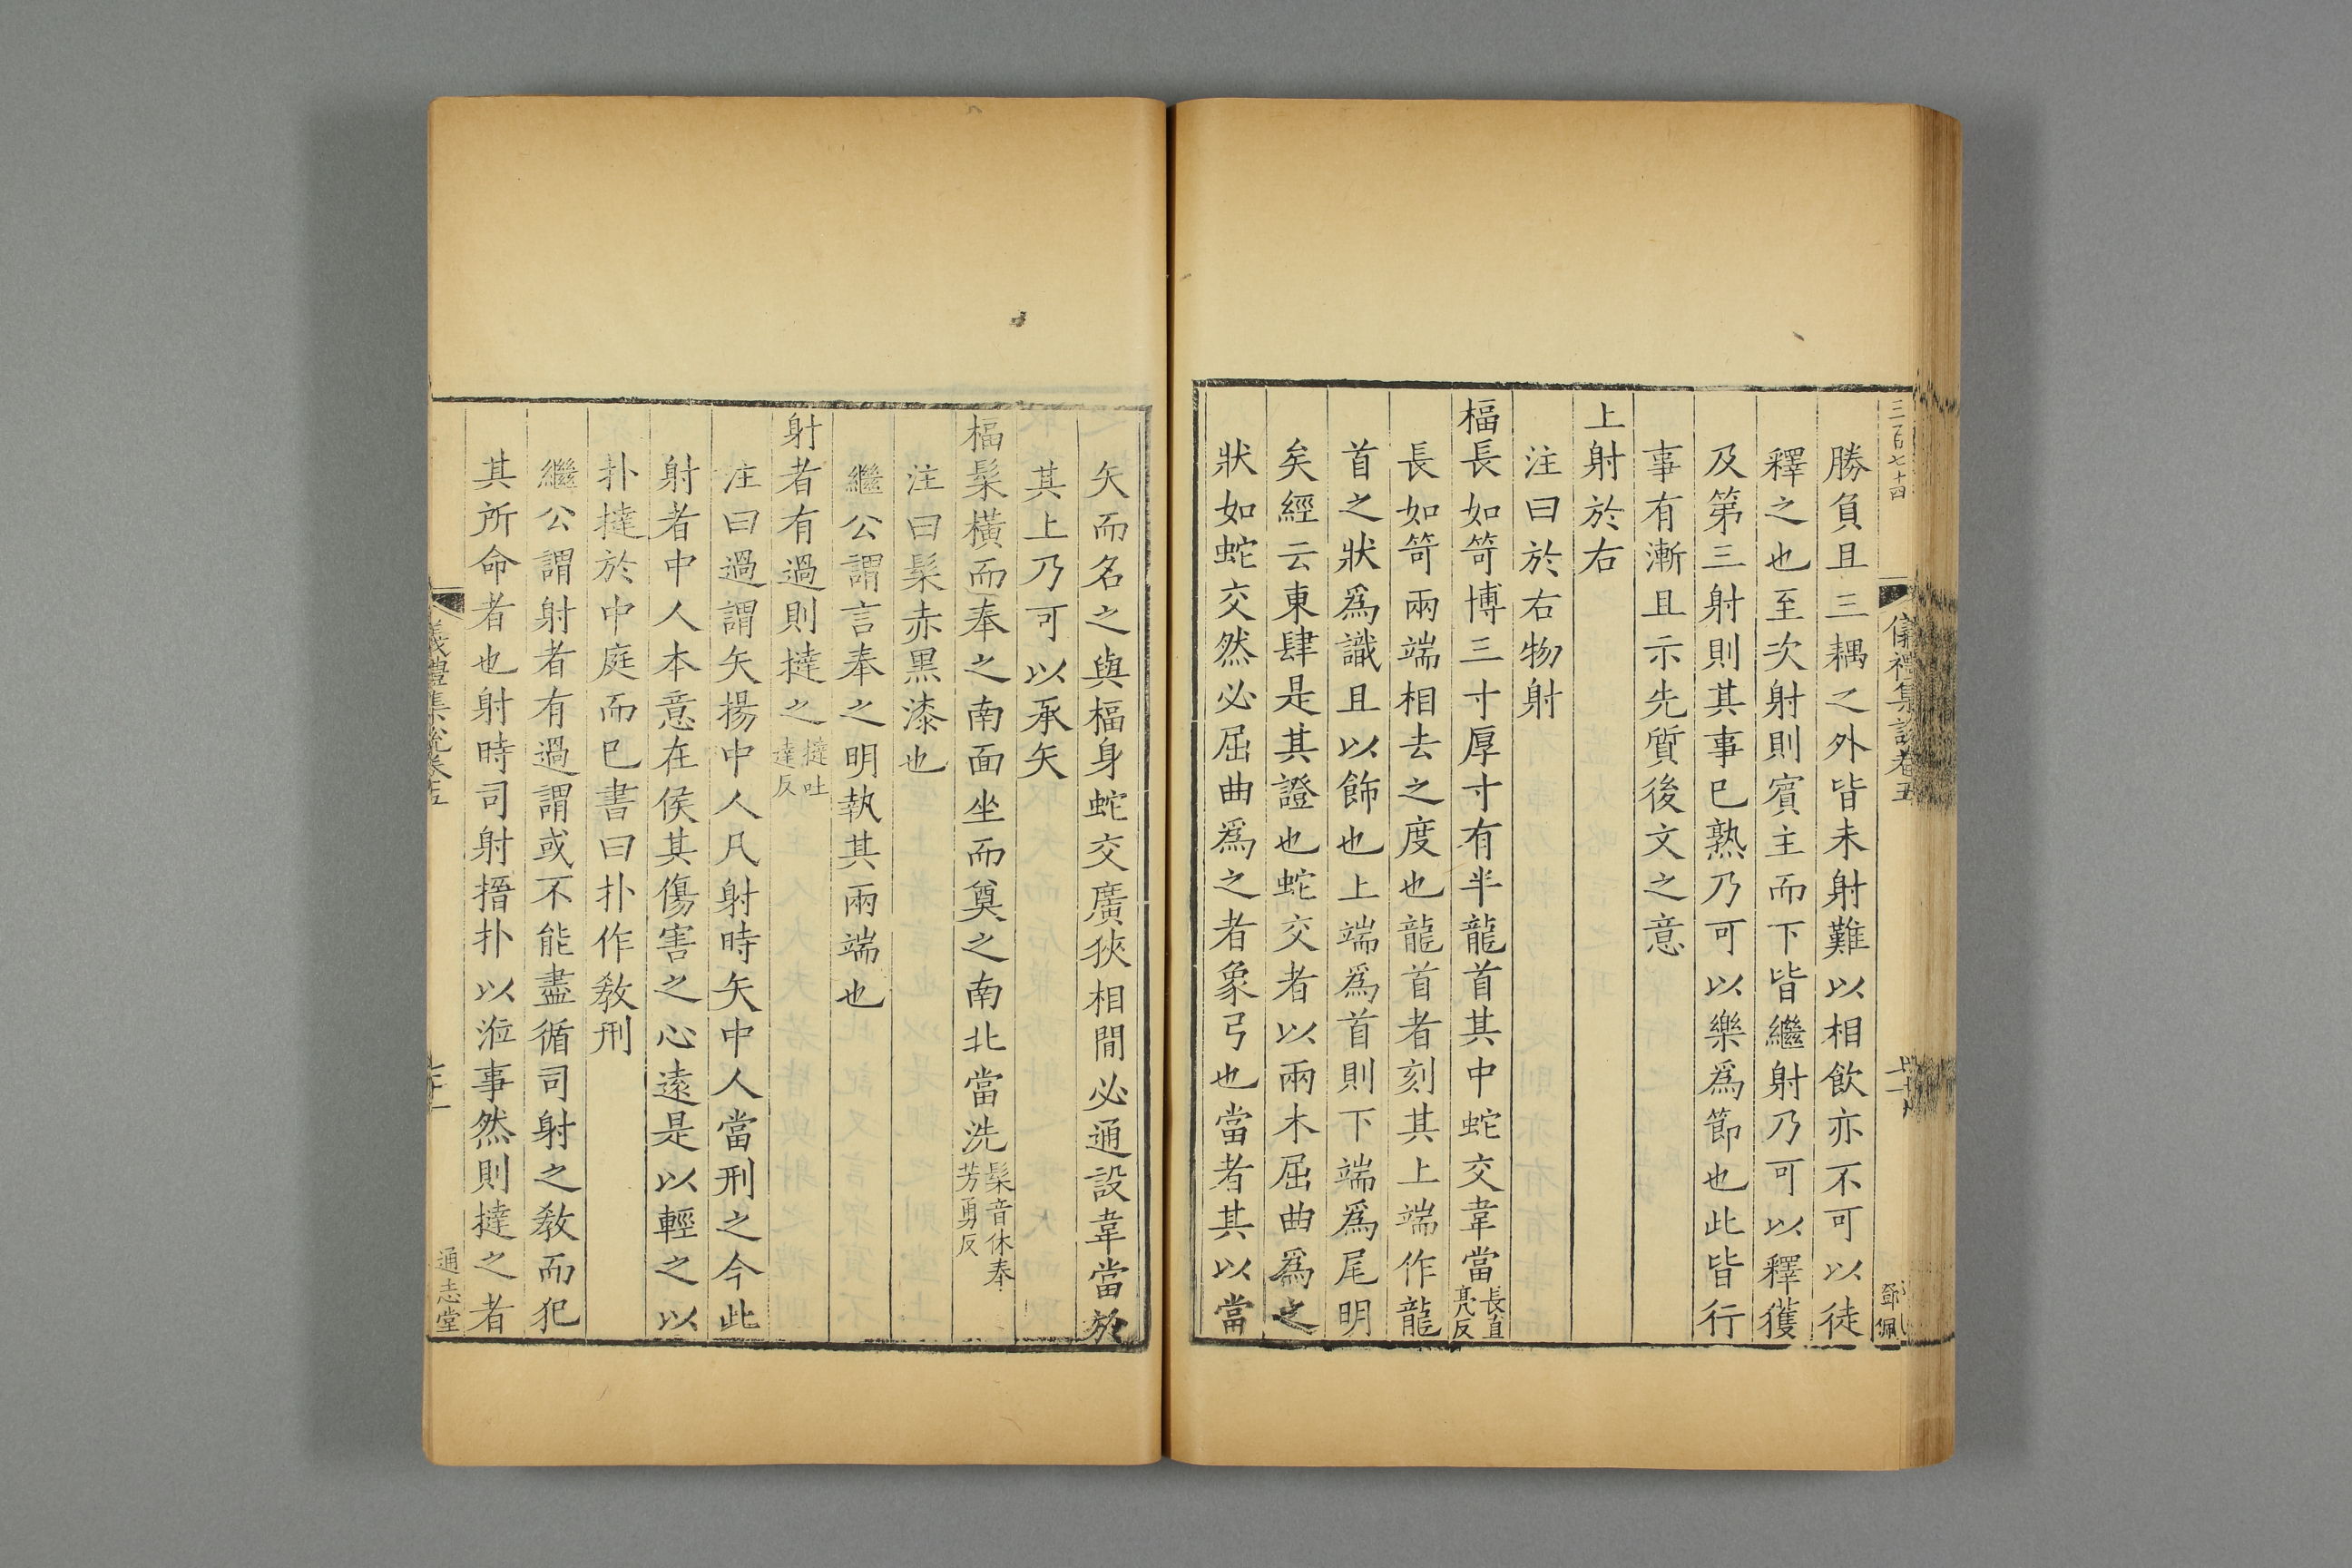 三百七十四
儀禮集説卷五
鄧佩
勝負且三耦之外皆未射難以相飲亦不可以徒
釋之也至次射則賓主而下皆繼射乃可以釋獲
及第三射則其事已熟乃可以樂爲節也此皆行
事有漸且示先質後文之意
上射於右
注曰於右物射
楅長如笴博三寸厚寸有半龍首其中蛇交韋當長直亮反
長如笴兩端相去之度也龍首者刻其上端作龍
首之狀爲識且以飾也上端爲首則下端爲尾明
矣經云東肆是其證也蛇交者以兩木屈曲爲之
狀如蛇交然必屈曲爲之者象弓也當者其以當
矢而名之與楅身蛇交廣狹相間必通設韋當於
其上乃可以承矢
楅髤橫而奉之南面坐而奠之南北當洗髤音休奉芳勇反
注曰髤赤黑漆也
繼公謂言奉之明執其兩端也
射者有過則撻之撻吐達反
注曰過謂矢揚中人凡射時矢中人當刑之今此
射者中人本意在侯其傷害之心遠是以輕之以
扑撻於中庭而已書曰扑作敎刑
繼公謂射者有過謂或不能盡循司射之敎而犯
其所命者也射時司射搢扑以涖事然則撻之者
儀禮集説卷五
通志堂